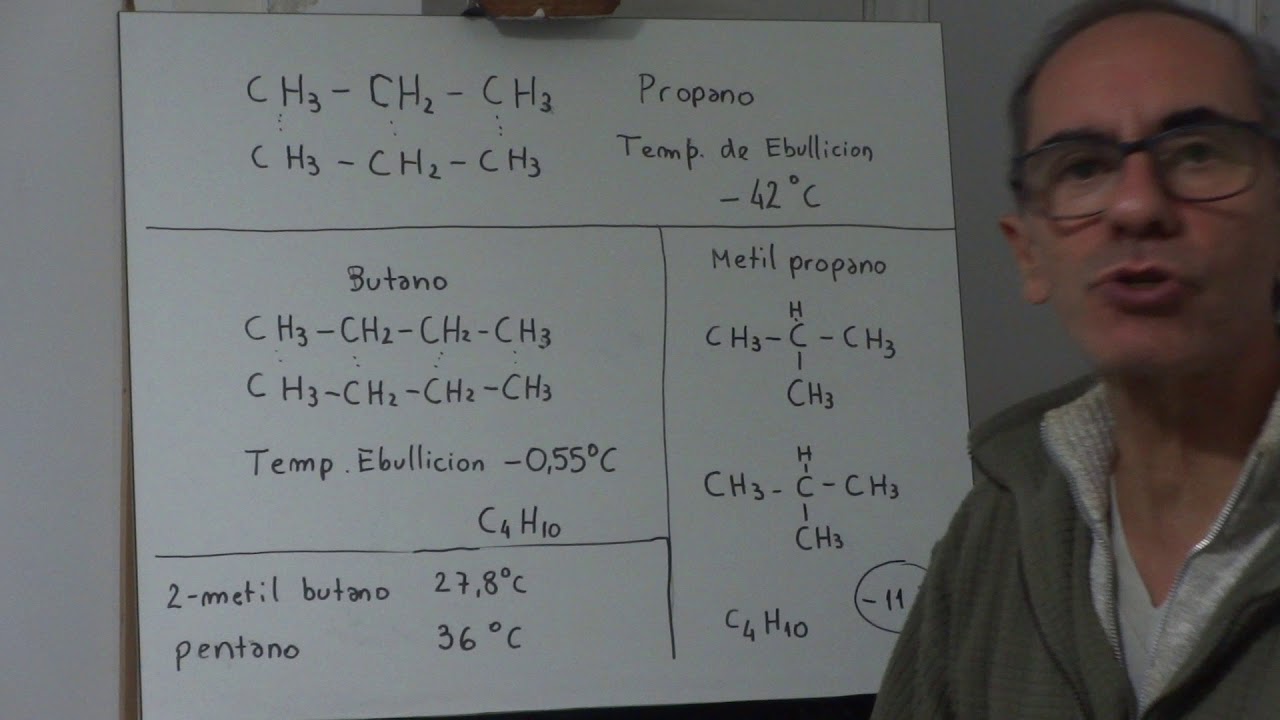 CH3 – CH2 – CH3 Propano
CH3 – CH2 – CH3 Temp. de Ebullicion
– 42°C
Butano
CH3 – CH2 – CH2 – CH3
CH3 – CH2 – CH2 – CH3
Temp. Ebullicion –0,55°C
C4H10
Metil propano
H
CH3 – C – CH3
CH3
H
CH3 – C – CH3
CH3
C4H10 –11
2-metil butano 27,8°C
pentano 36°C